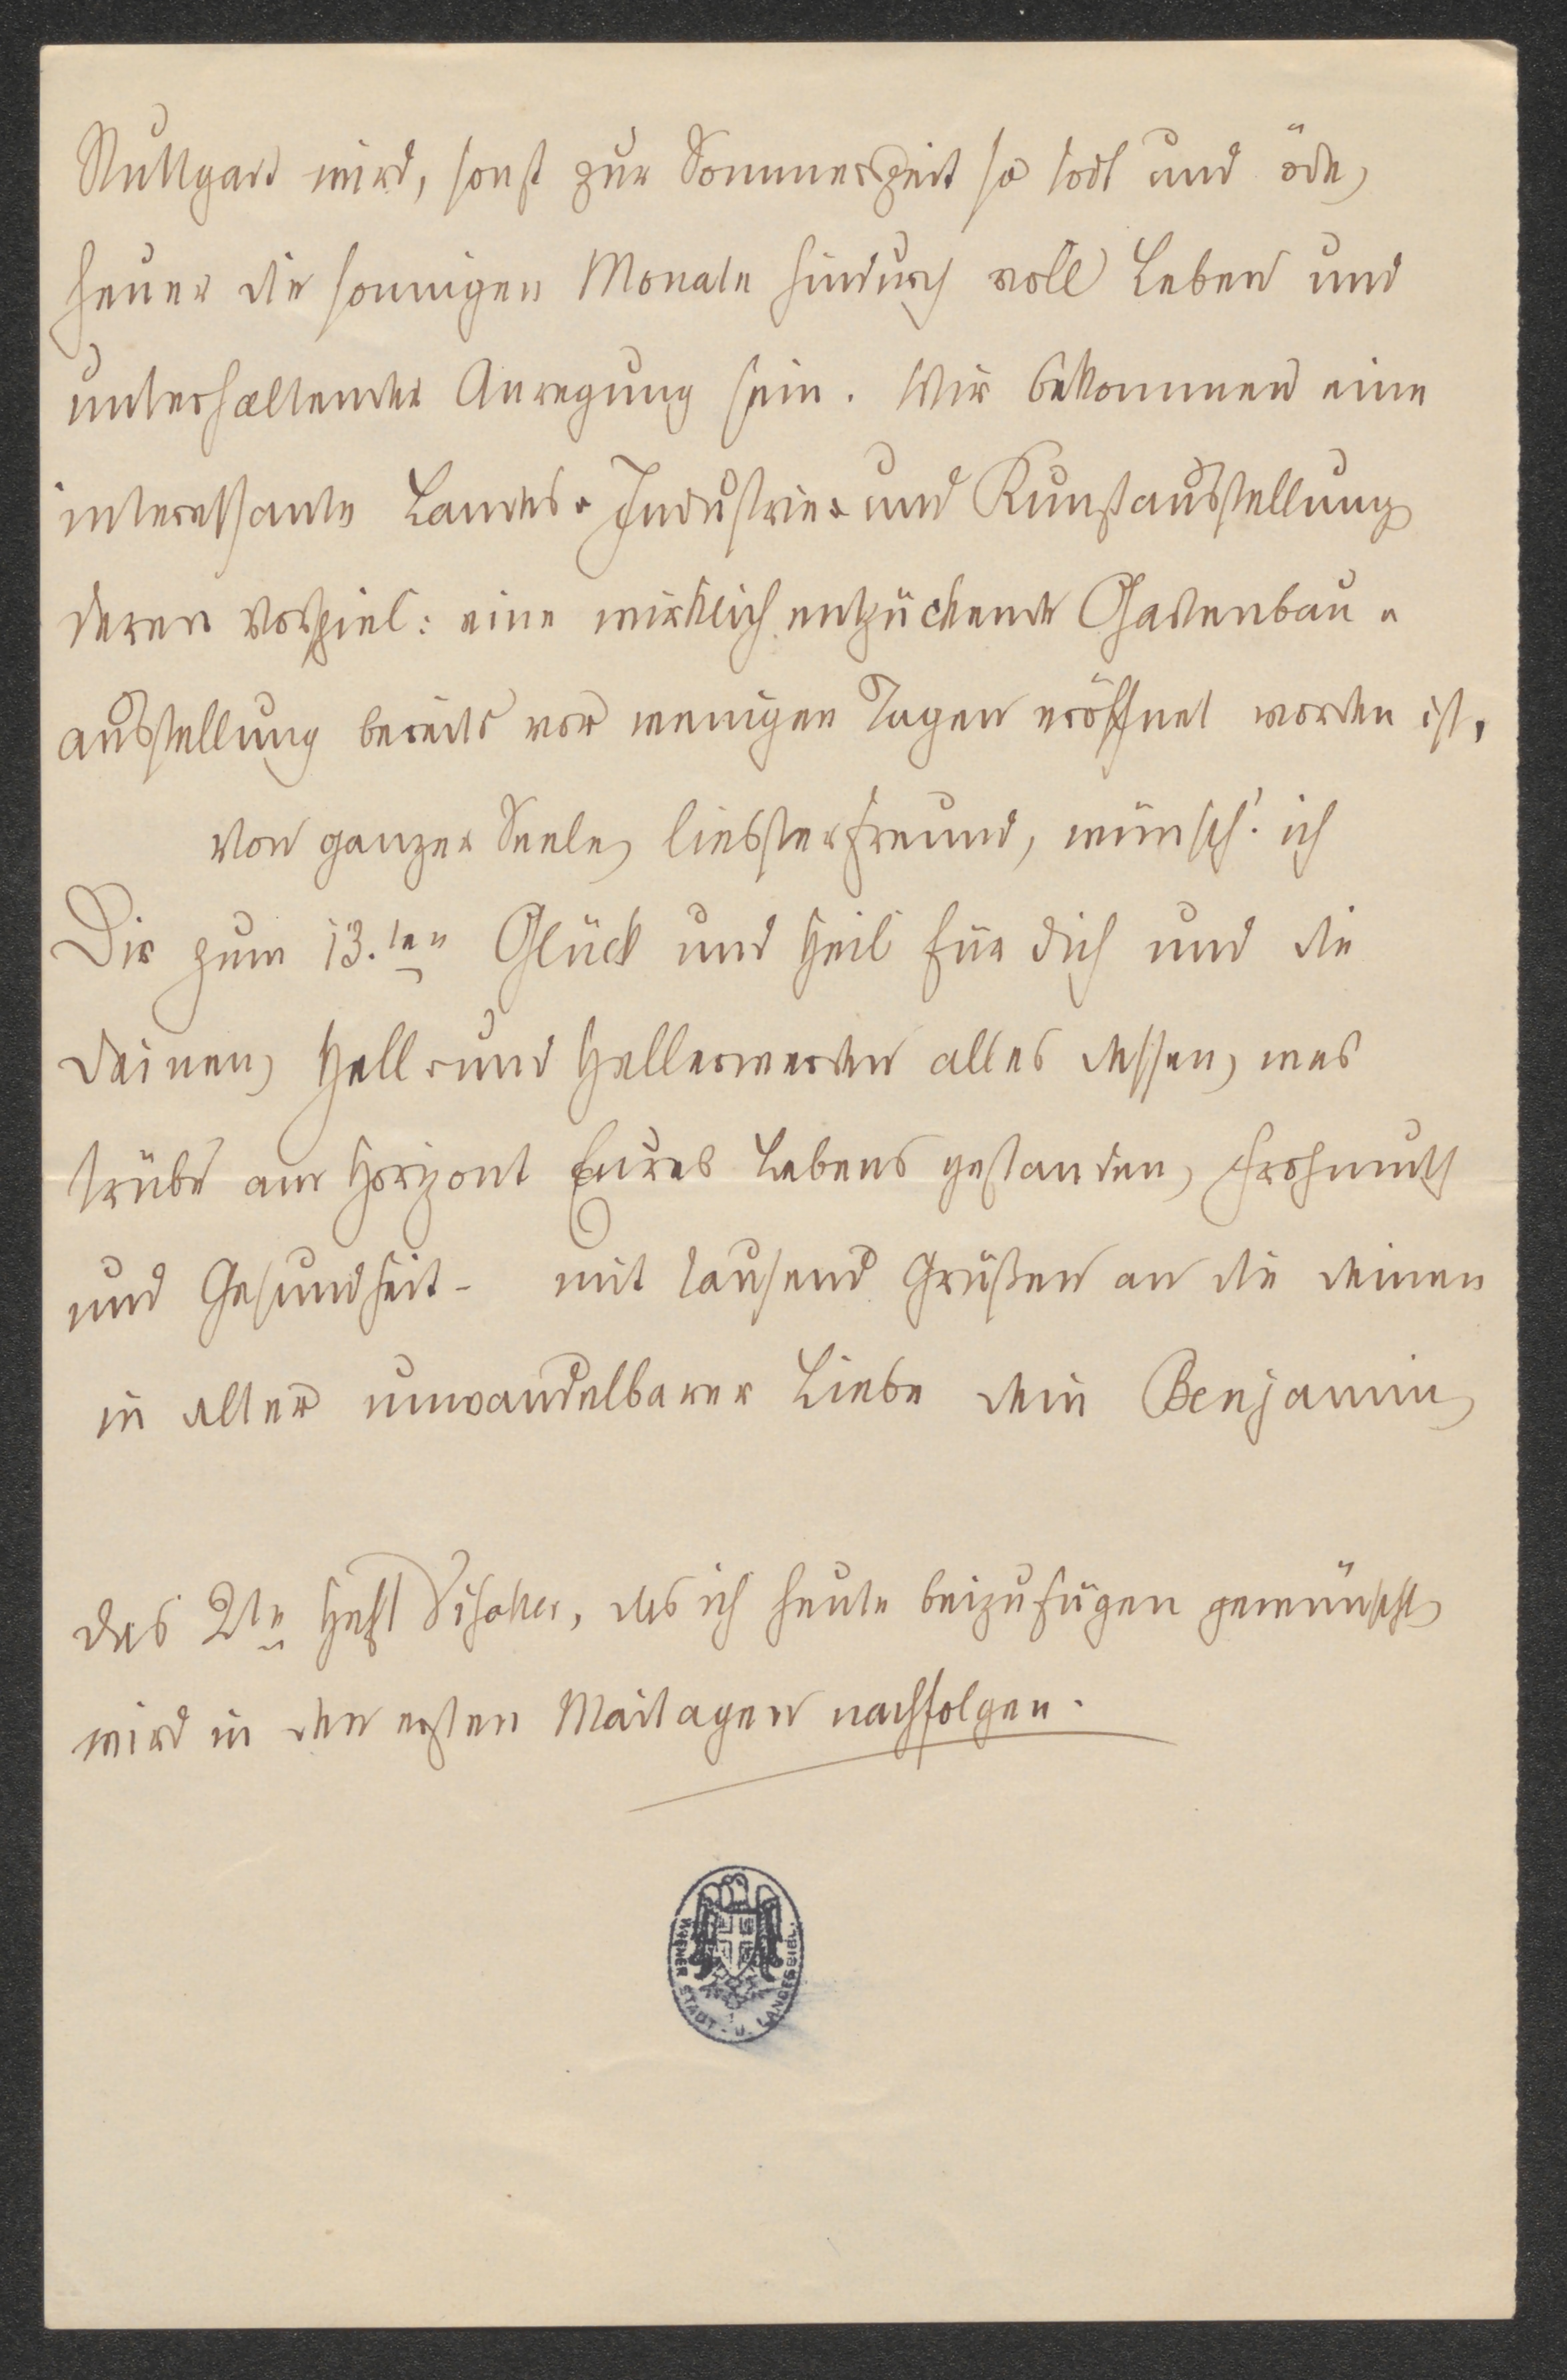 Stuttgart wird, sonst zur Sommerszeit so todt und öde,
heuer die sonnigen Monate hindurch voll Leben und
unterhaltender Anregung sein. Wir bekommen eine
interessante Landes- Industrie- und Kunstausstellung
deren Vorspiel: eine wirklich entzückende Gartenbau-
ausstellung bereits vor wenigen Tagen eröffnet worden ist.
Von ganzer Seele, liebster Freund, wünsch' ich
Dir zum 13.ten Glück und Heil für dich und die
deinen, Hell- und Hellerwerden alles dessen, was
trübe am Horizont Eures Lebens gestanden, Frohmuth
und Gesundheit - mit tausend Grüßen an die deinen
in alter unwandelbarer Liebe dein Benjamin
das 2te Heft, das ich heute beizufügen gewünscht
wird in den ersten Maitagen nachfolgen.
WIENER STADT- U. LANDESBIBL.